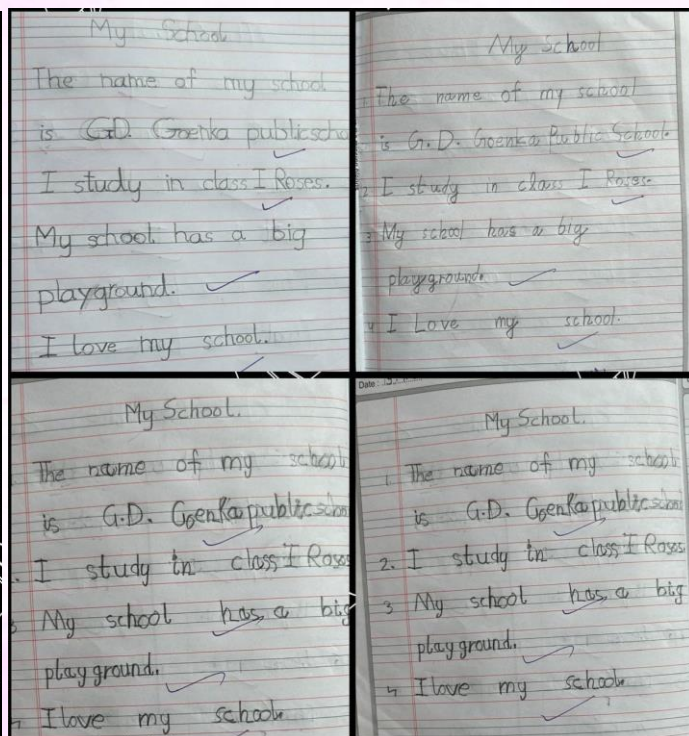 My School
The name of my school
is G.D. Goenka publicscho
I study in class I Roses.
My school has a big
playground.
I love my school.
My School
The name of my school
is G.D. Goenka Public School.
2 I study in class I Roses.
3 My school has a big
playground.
4 I Love my school.
My School.
The name of my school
is G.D. Goenka public schoo
. I study in class I Roses
3 My school has a big
playground.
I love my school.
Date :
My School.
1. The name of my school
is G.D. Goenka public school
2. I study in class I Roses
3 My school has a big
playground.
4 I love my school.